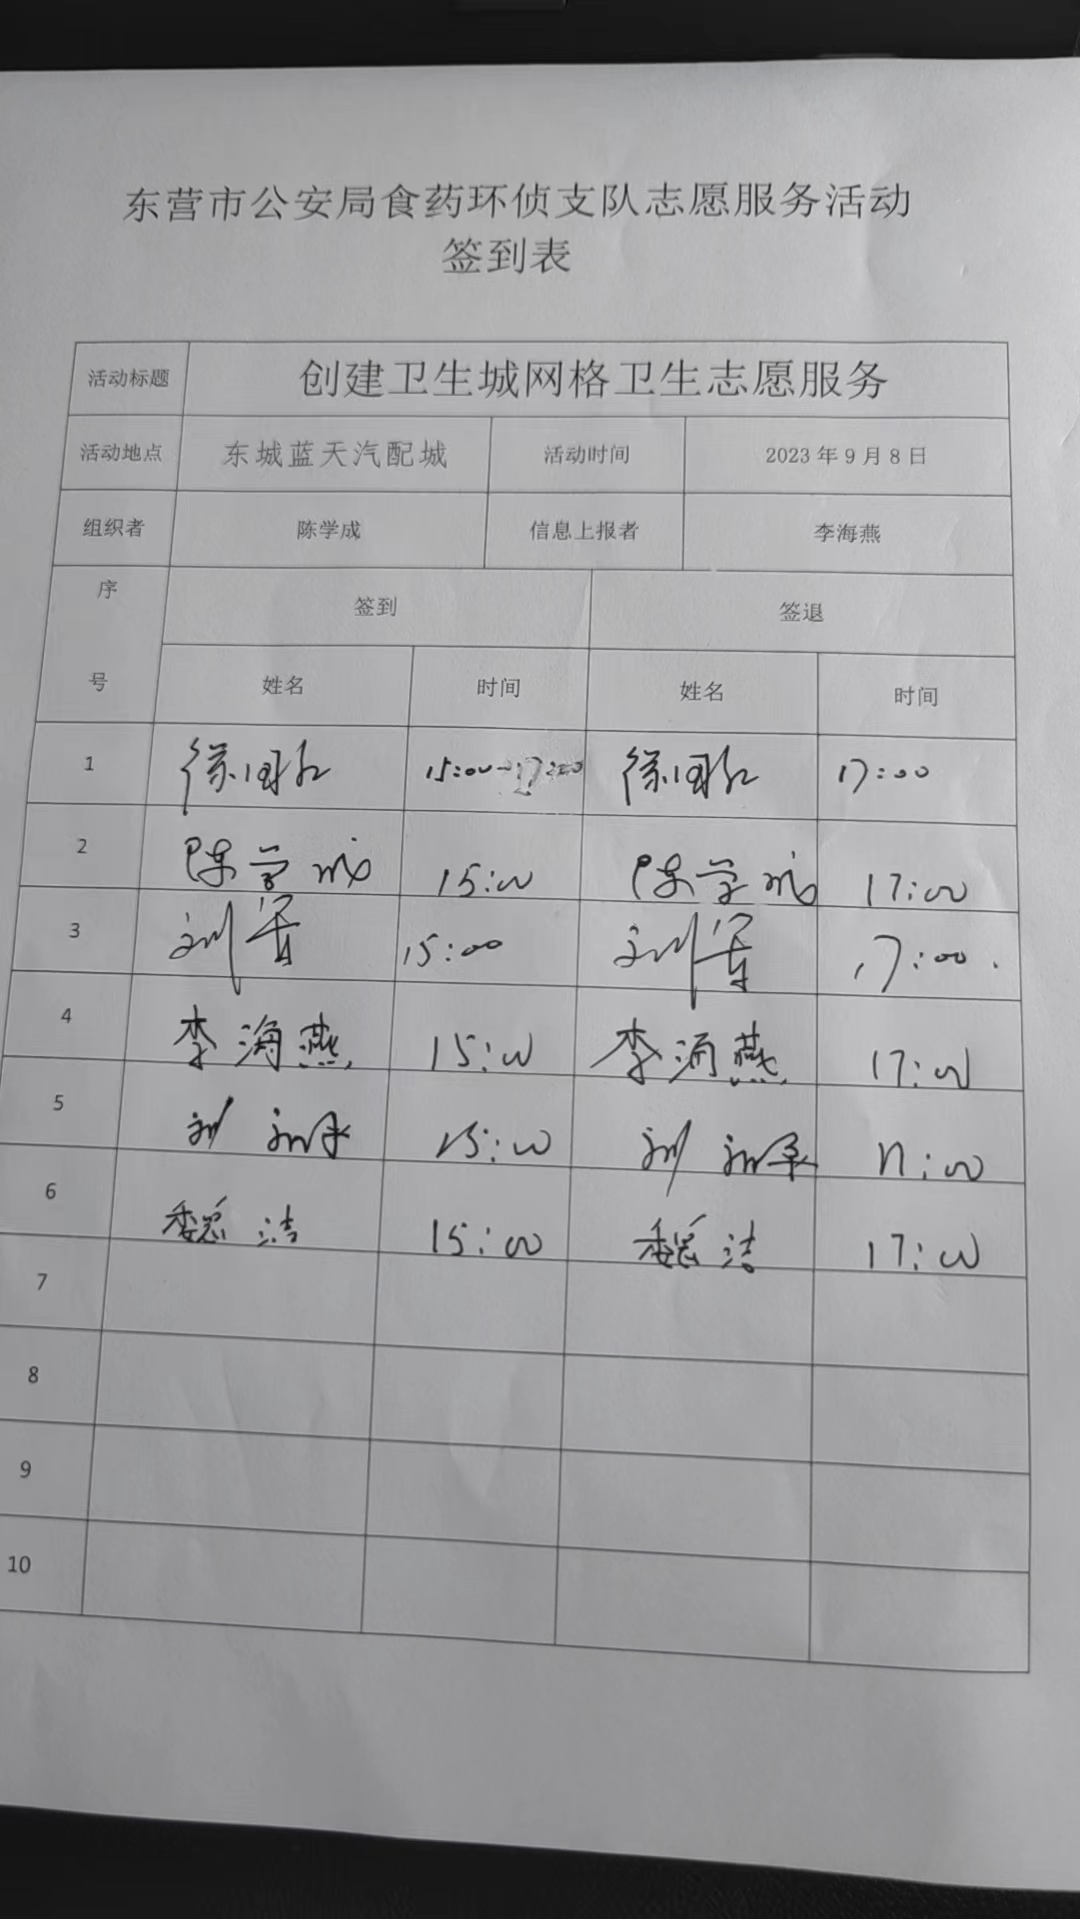 东营市公安局食药环侦支队志愿服务活动
签到表
活动标题 创建卫生城网格卫生志愿服务
活动地点 东城蓝天汽配城 活动时间 2023年9月8日
组织者 陈学成 信息上报者 李海燕
序号 签到 签退
姓名 时间 姓名 时间
1 徐 15:00-17:00 徐 17:00
2 陈学成 15:00 陈学成 17:00
3 刘军 15:00 刘军 17:00
4 李海燕 15:00 李海燕 17:00
5 刘 15:00 刘 17:00
6 魏洁 15:00 魏洁 17:00
7
8
9
10